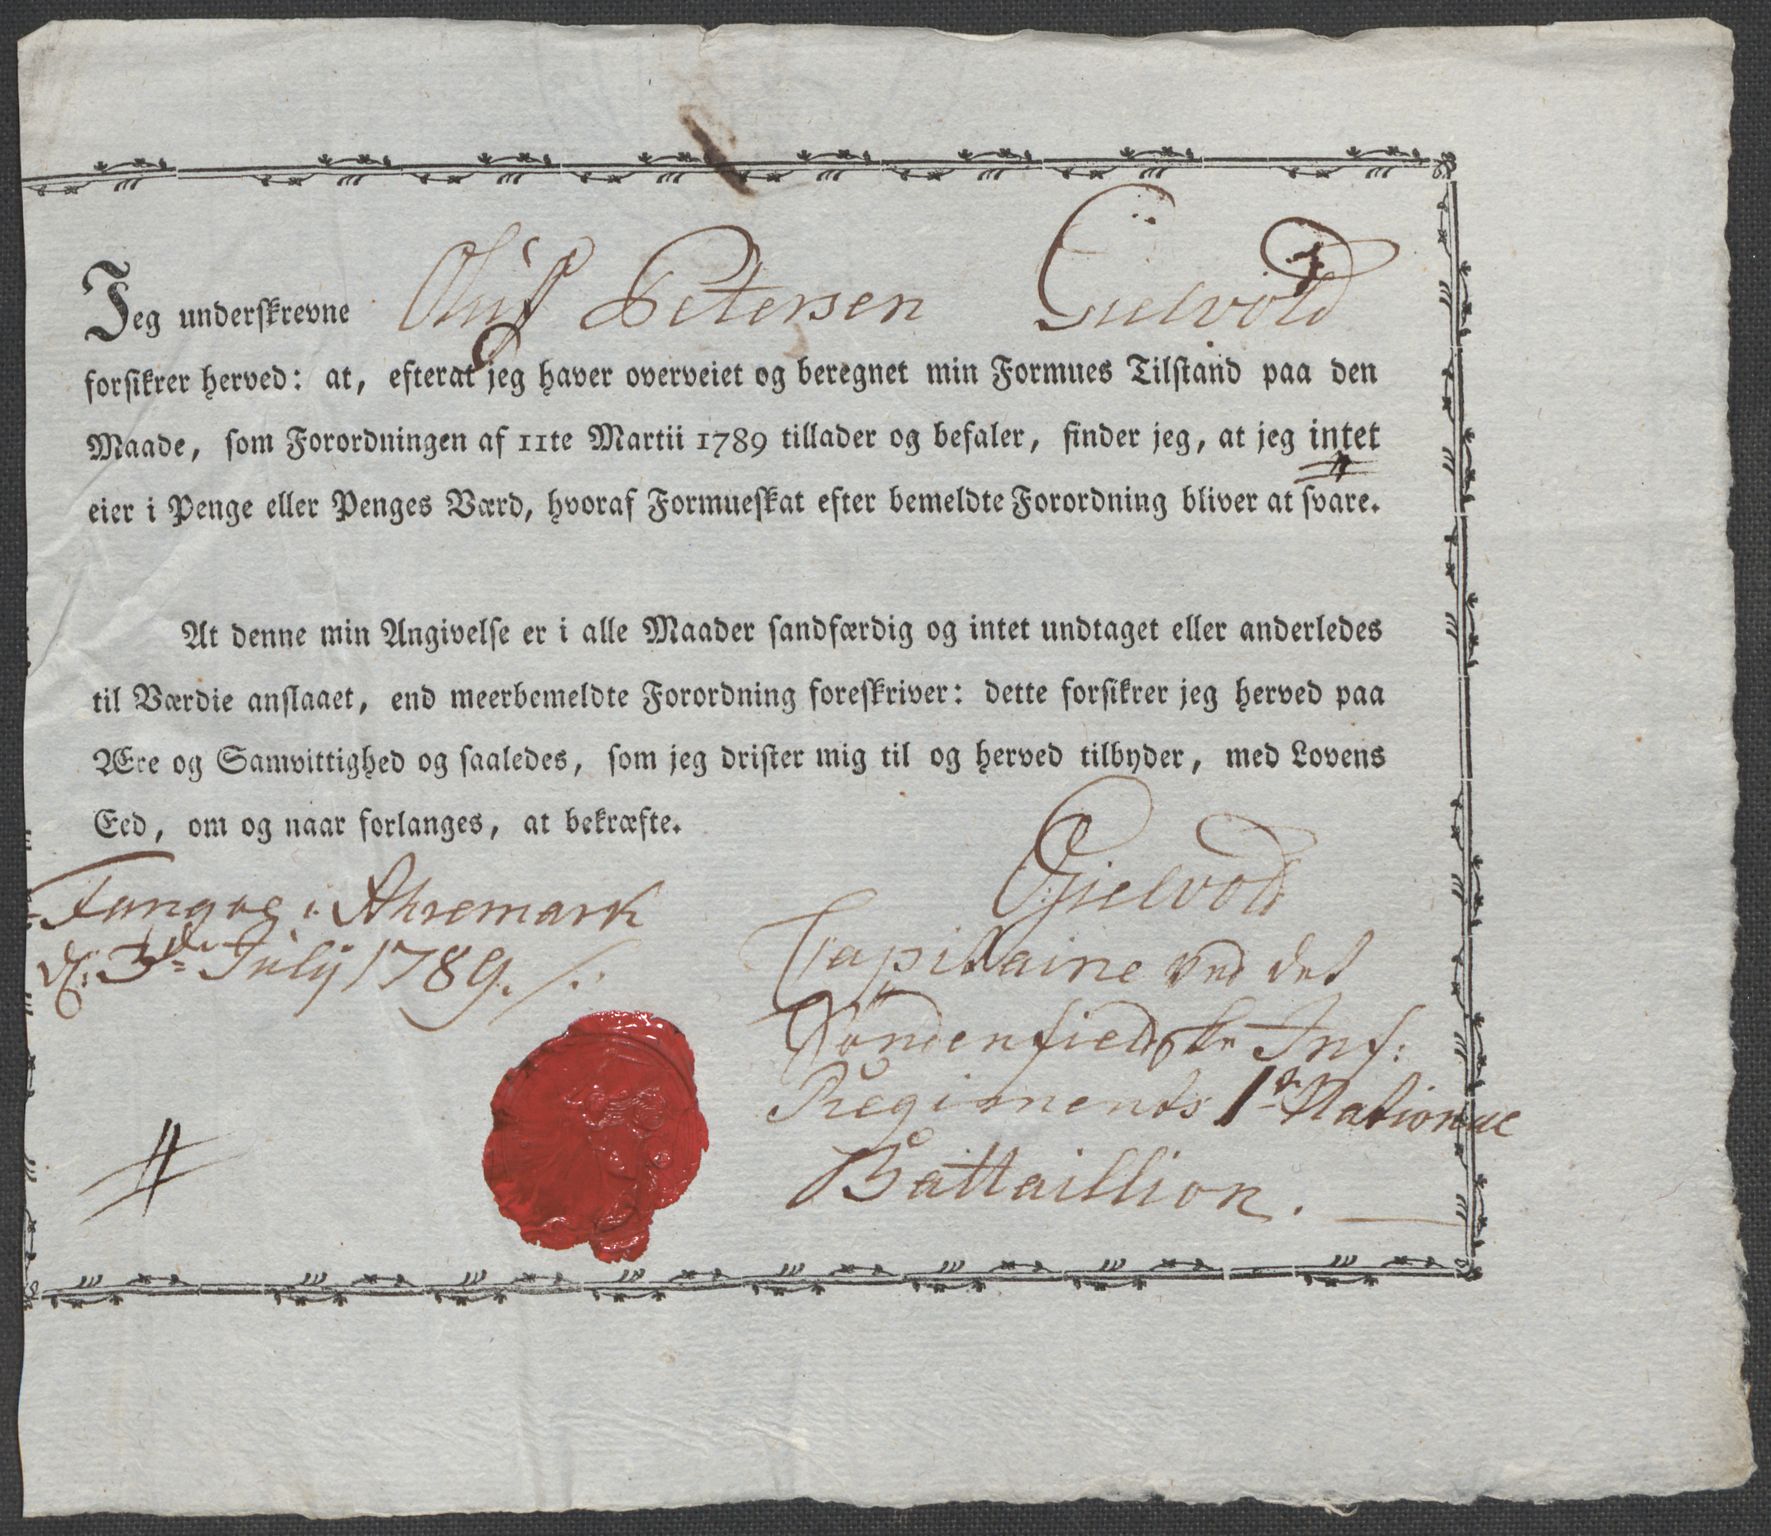 Jeg underskrevne Oluf Petersen Gielvold
forsikrer herved: at, efterat jeg haver overveiet og beregnet min Formues Tilstand paa den
Maade, som Forordningen af 11te Martii 1789 tillader og befaler, finder jeg, at jeg intet
eier i Penge eller Penges Værd, hvoraf Formueskat efter bemeldte Forordning bliver at svare.
At denne min Angivelse er i alle Maader sandfærdig og intet undtaget eller anderledes
til Værdie anslaaet, end meerbemeldte Forordning foreskriver: dette forsikrer jeg herved paa
Ære og Samvittighed og saaledes, som jeg drister mig til og herved tilbyder, med Lovens
Eed, om og naar forlanges, at bekræfte.
i Ahremark
d: 3de July 1789.
Gielvold
Capitaine ved det
Søndenfieldske Inf:
Regiments 1te Nationale
Battaillion.